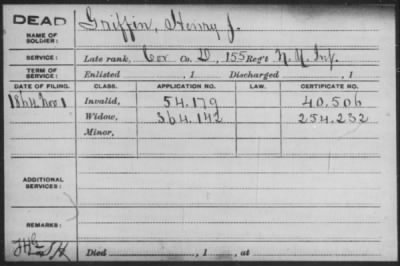 DEAD
NAME OF SOLDIER: Griffin, Henry J.
SERVICE: Late rank, Cor Co. D, 155 Reg't N.Y. Inf.
TERM OF SERVICE: Enlisted , 1 Discharged , 1
DATE OF FILING. CLASS. APPLICATION NO. LAW. CERTIFICATE NO.
1864 Nov 1 Invalid, 54.179 40.506
Widow, 364.142 254.232
Minor,
ADDITIONAL SERVICES:
REMARKS:
Died , 1 , at